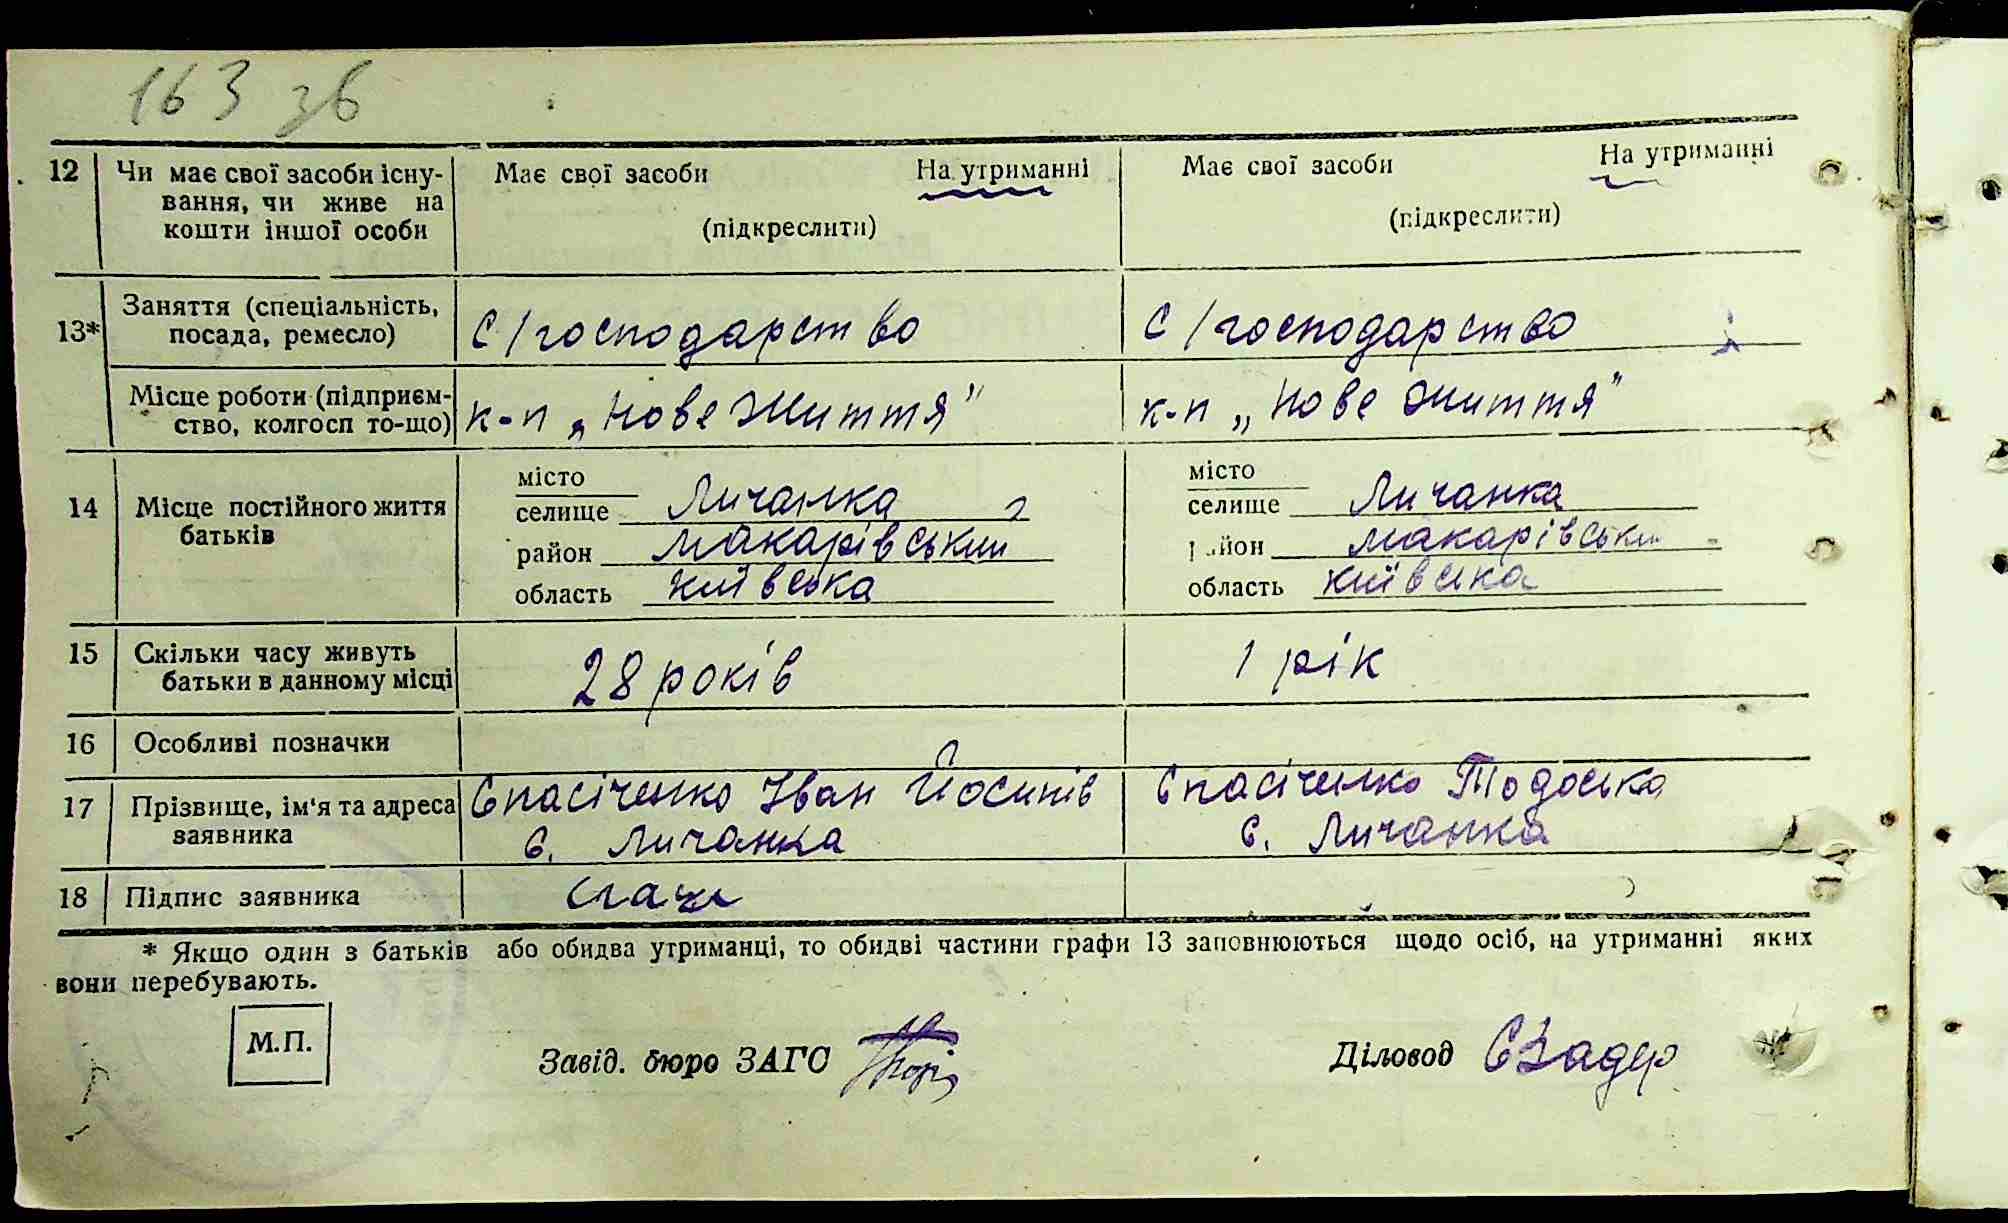 163 зв
12 Чи має свої засоби існу- Має свої засоби На утриманні Має свої засоби На утриманні
вання, чи живе на
кошти іншої особи (підкреслити) (підкреслити)
13* Заняття (спеціальність,
посада, ремесло) С/господарство С/господарство
Місце роботи (підприєм-
ство, колгосп то-що) к-п „Нове Життя" к-п „Нове Життя"
місто місто
14 Місце постійного життя селище Личанка селище Личанка
батьків район Макарівський район Макарівський
область Київська область Київська
15 Скільки часу живуть
батьки в данному місці 28 років 1 рік
16 Особливі позначки
17 Прізвище, ім'я та адреса Спасіченко Іван Йосипів Спасіченко Тодоська
заявника с. Личанка с. Личанка
18 Підпис заявника
* Якщо один з батьків або обидва утриманці, то обидві частини графи 13 заповнюються щодо осіб, на утриманні яких
вони перебувають.
М.П.
Завід. бюро ЗАГС Діловод